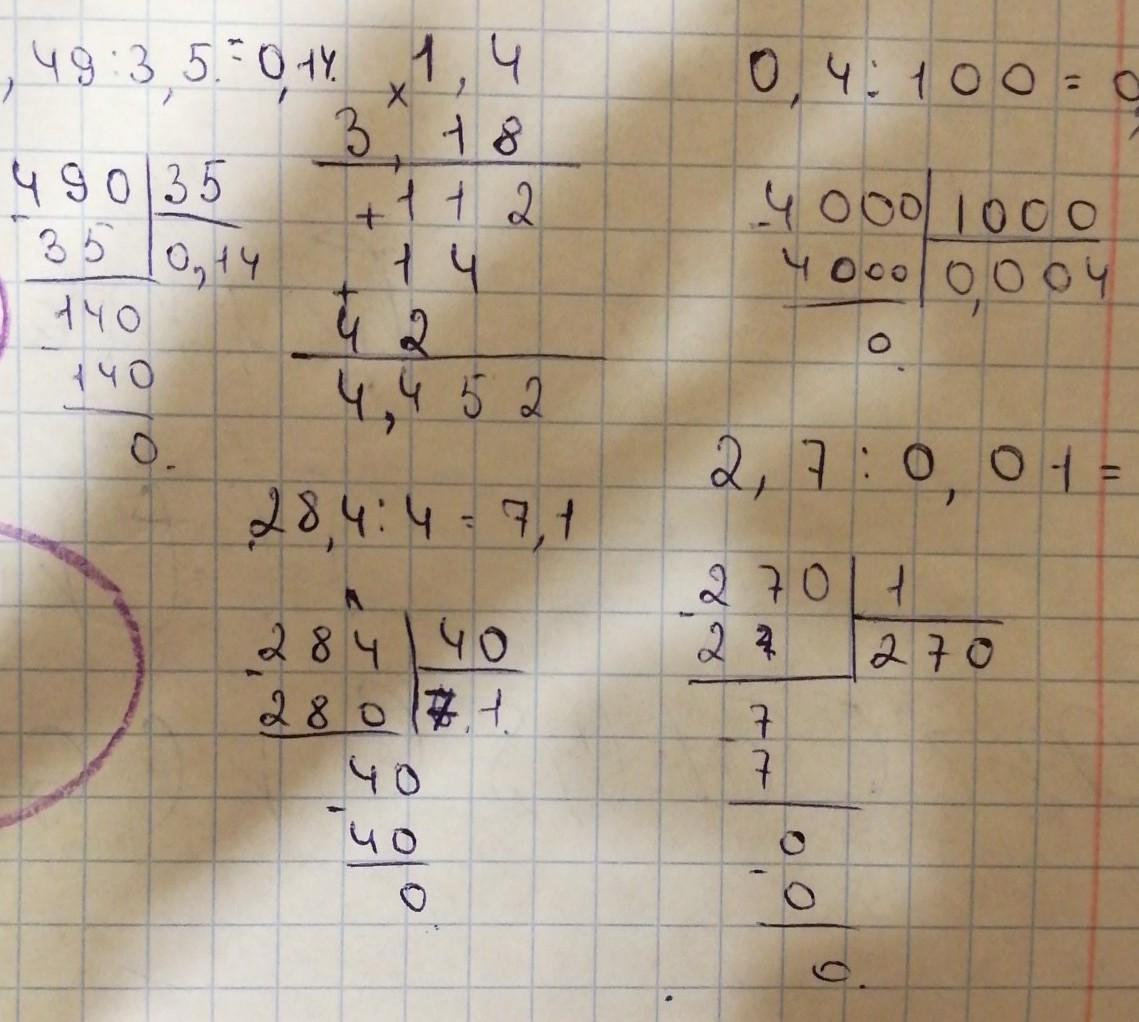 ,49:3,5.=0,14.
490 35
35 0,14
140
140
0.
× 1,4
3,18
+112
+ 14
42
4,452
28,4:4=7,1
-284 40
280 7.1.
40
- 40
0
0,4:100=0,
-4000 1000
4000 0,004
0.
2,7:0,01=
-270 1
27 270
-7
7
0
-0
0.